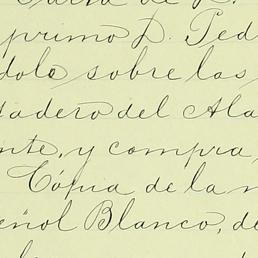 Carta de D.
primo D. Ped
dole sobre las
dadero del Ala
nte, y compra
Cópia de la m
eñol Blanco, de